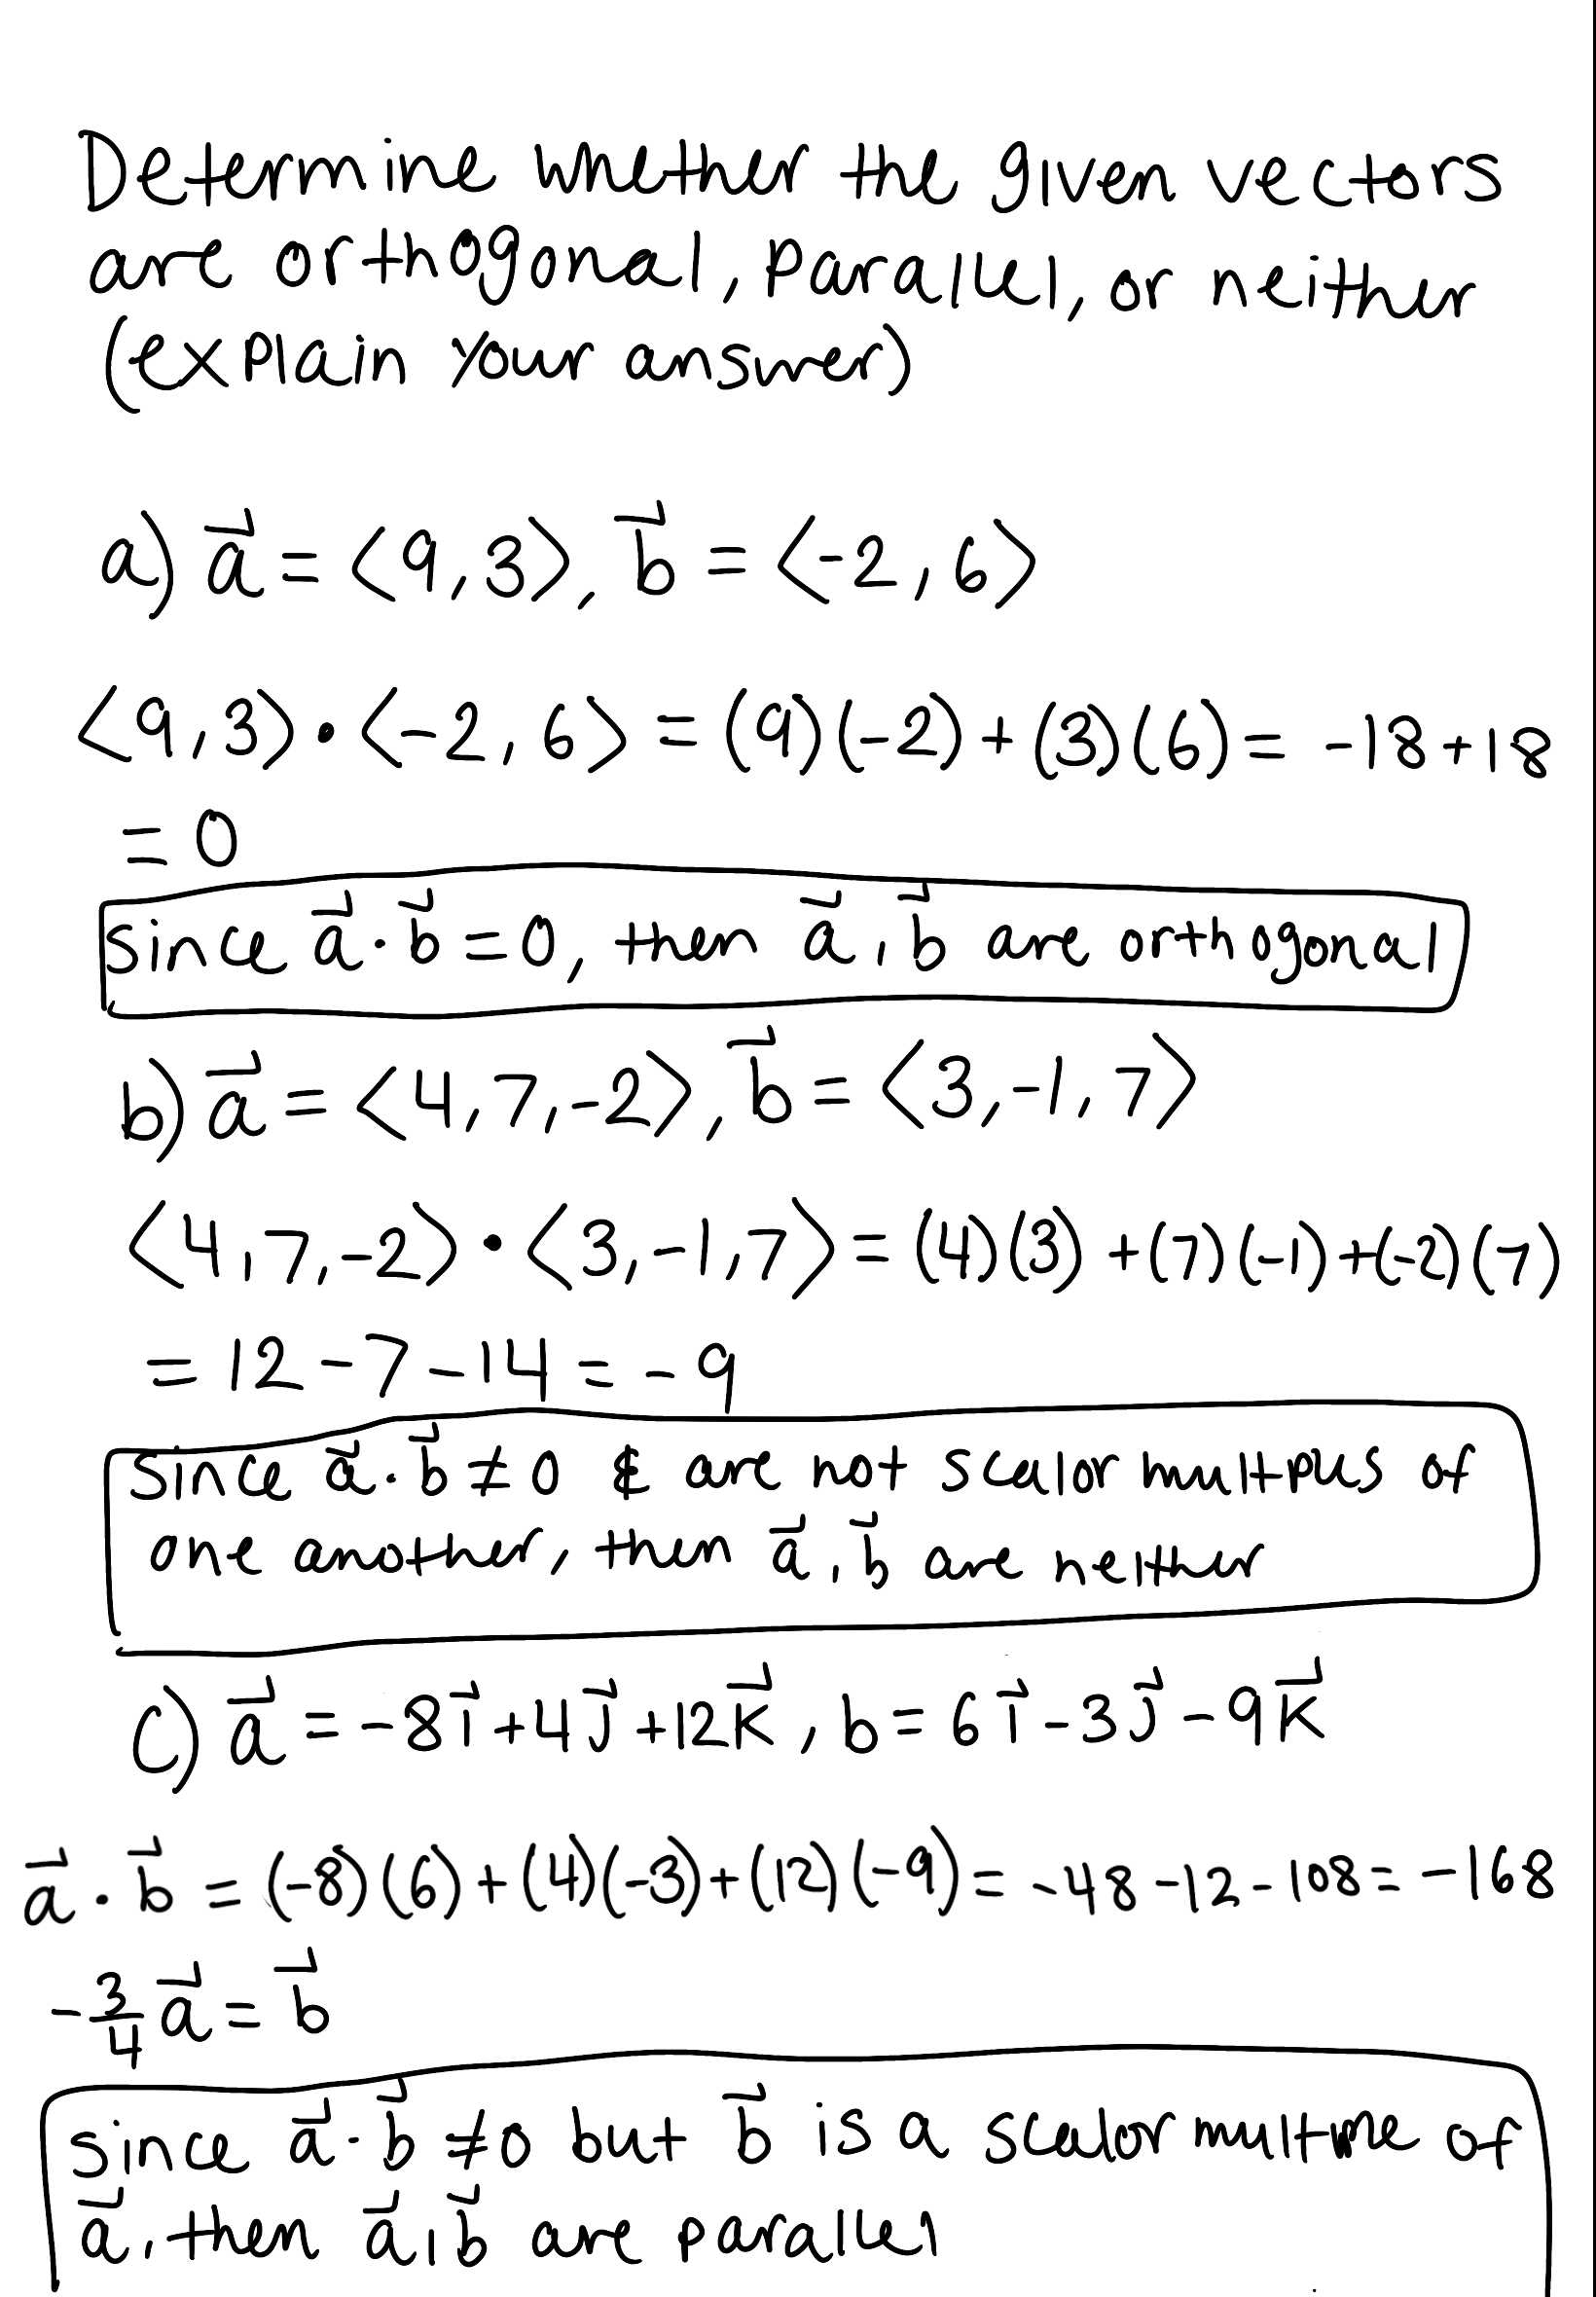 Determine whether the given vectors
are orthogonal, parallel, or neither
(explain your answer)
a) a⃗ = <9,3>, b⃗ = <-2,6>
<9,3>•<-2,6> = (9)(-2)+(3)(6) = -18+18
= 0
since a⃗·b⃗=0, then a⃗,b⃗ are orthogonal
b) a⃗ = <4,7,-2>, b⃗ = <3,-1,7>
<4,7,-2>•<3,-1,7> = (4)(3)+(7)(-1)+(-2)(7)
= 12-7-14 = -9
since a⃗·b⃗≠0 & are not scalor multpus of
one another, then a⃗,b⃗ are neither
c) a⃗ = -8i⃗+4j⃗+12k⃗, b = 6i⃗-3j⃗-9k⃗
a⃗·b⃗ = (-8)(6)+(4)(-3)+(12)(-9) = -48-12-108 = -168
-3/4 a⃗ = b⃗
since a⃗·b⃗ ≠0 but b⃗ is a scalor multiple of
a⃗, then a⃗,b⃗ are parallel